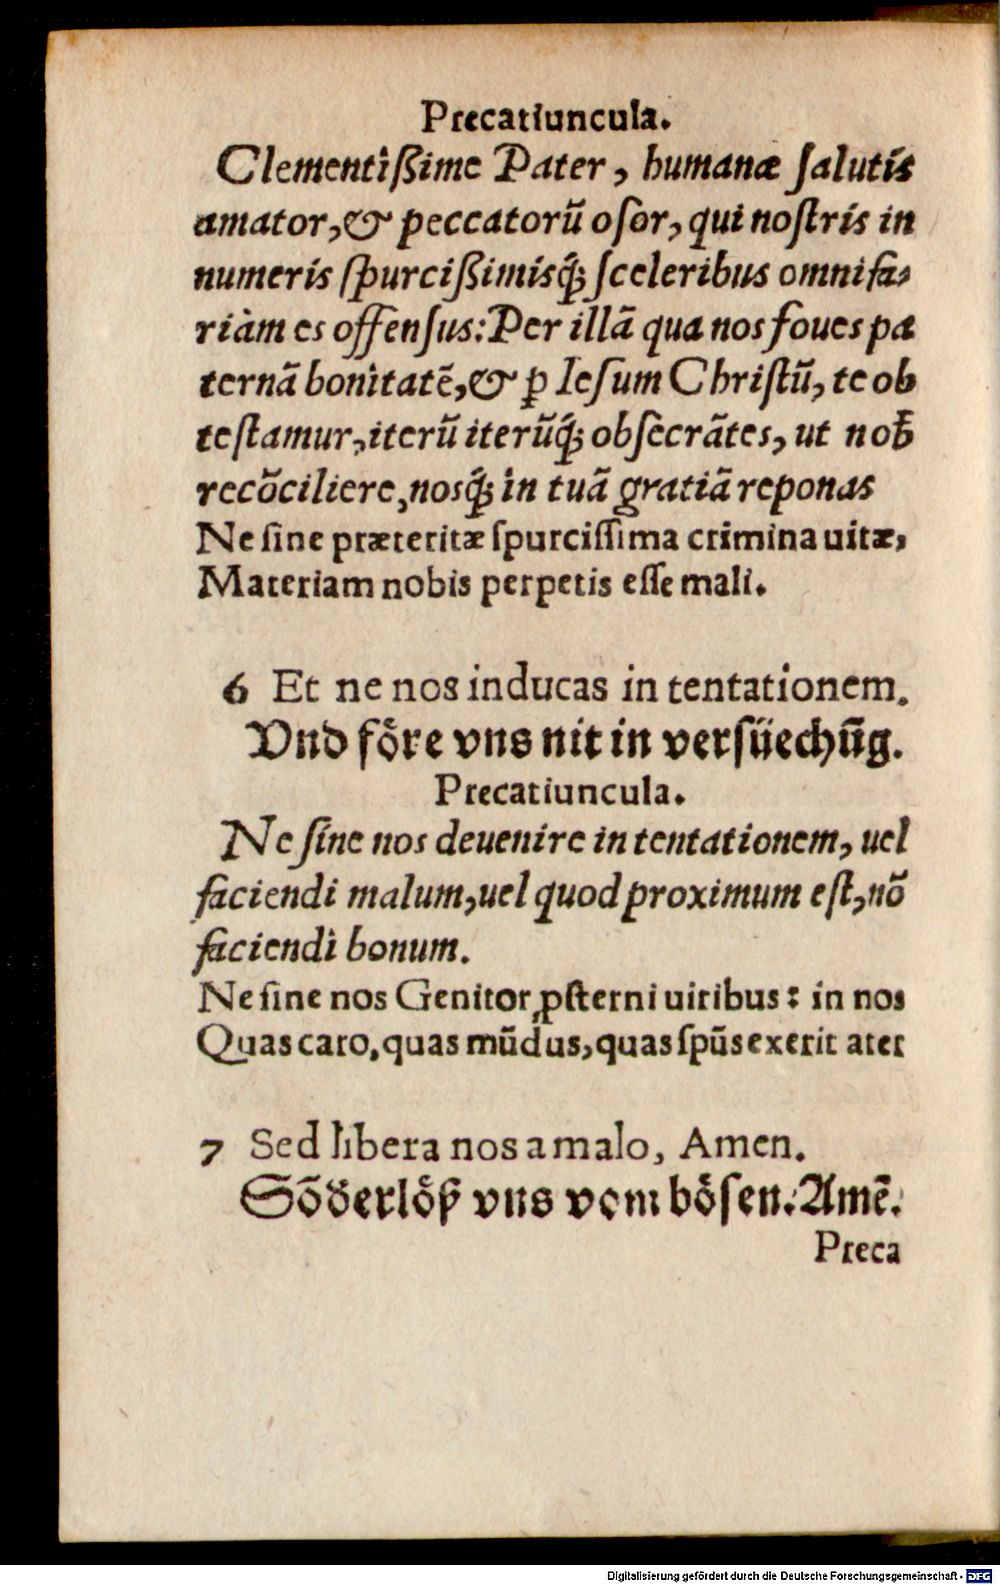 Precatiuncula.
Clementißime Pater, humanæ ſalutis
amator, & peccatorũ oſor, qui noſtris in
numeris ſpurcißimisq́; ſceleribus omnifa⸗
riàm es offenſus: Per illã qua nos foues pa
ternã bonitatẽ, & ꝑ Ieſum Chriſtũ, te ob
teſtamur, iterũ iterũq́; obſecrãtes, ut nob̃
recõciliere, nosq́; in tuã gratiã reponas
Ne ſine præteritæ ſpurciſſima crimina uitæ,
Materiam nobis perpetis eſſe mali.
6 Et ne nos inducas in tentationem.
Vnd fo̊re vns nit in verſüechũg.
Precatiuncula.
Ne ſine nos deuenire in tentationem, uel
faciendi malum, uel quod proximum eſt, nõ
faciendi bonum.
Ne ſine nos Genitor ꝓſterni uiribus: in nos
Quas caro, quas mũdus, quas ſpũs exerit ater
7 Sed libera nos a malo, Amen.
Sõderlöß vns vom böſen. Amẽ.
Preca
Digitalisierung gefördert durch die Deutsche Forschungsgemeinschaft - DFG